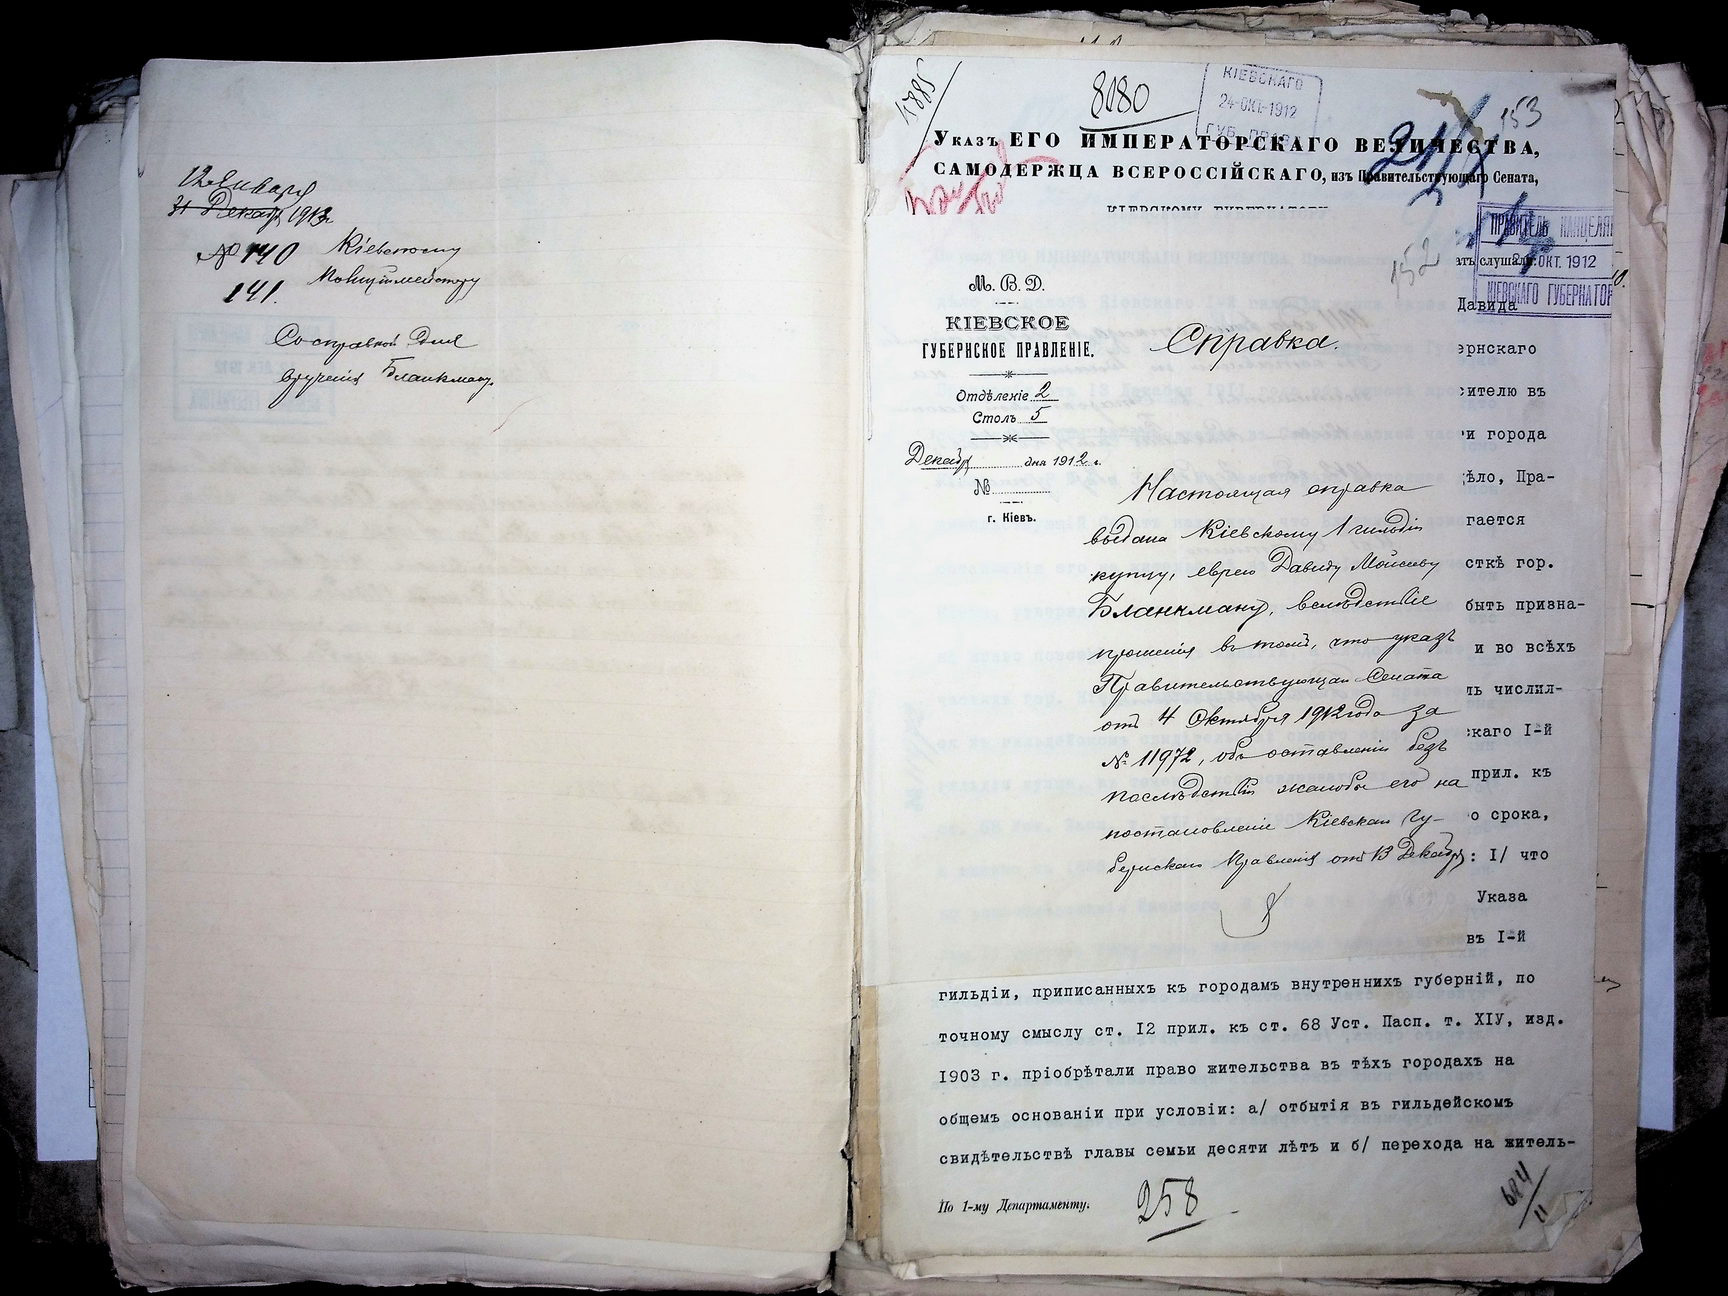 12 Января
31 Декабр 1913 г.
№ 140 Кіевскому
141. Полиціймейстеру
Со справкой для
врученія Бланкману.
17885
8080
КІЕВСКАГО
24-ОКТ-1912
ГУБ. ПРАВ.
153
Указъ ЕГО ИМПЕРАТОРСКАГО ВЕЛИЧЕСТВА,
САМОДЕРЖЦА ВСЕРОССІЙСКАГО, изъ Правительствующаго Сената,
КІЕВСКОМУ ГУБЕРНАТОРУ
ПРАВИТЕЛЬ КАНЦЕЛЯР
ОКТ. 1912
КІЕВСКАГО ГУБЕРНАТОР
152
ать слушали:
Давида
ернскаго
сителю въ
и города
дѣло, Пра-
гается
сткѣ гор.
быть призна-
и во всѣхъ
ъ числил-
скаго I-й
прил. къ
о срока,
: I/ что
Указа
въ I-й
М. В. Д.
КІЕВСКОЕ
ГУБЕРНСКОЕ ПРАВЛЕНІЕ.
Отдѣленіе 2
Столъ 5
Декабр дня 1912 г.
№
г. Кіевъ.
Справка.
Настоящая справка
выдана Кіевскому 1 гильдіи
купцу, еврею Давиду Мойсееву
Бланкману, вслѣдствіе
прошенія въ томъ, что указъ
Правительствующаго Сената
отъ 4 Октября 1912 года за
№ 11972, объ оставленіи безъ
послѣдствій жалобы его на
постановленіе Кіевскаго Гу-
бернскаго Правленія отъ 13 Декабр
гильдіи, приписанныхъ къ городамъ внутреннихъ губерній, по
точному смыслу ст. I2 прил. къ ст. 68 Уст. Пасп. т. ХІУ, изд.
I903 г. пріобрѣтали право жительства въ тѣхъ городахъ на
общемъ основаніи при условіи: а/ отбытія въ гильдейскомъ
свидѣтельствѣ главы семьи десяти лѣтъ и б/ перехода на житель-
По 1-му Департаменту.
258
684/11